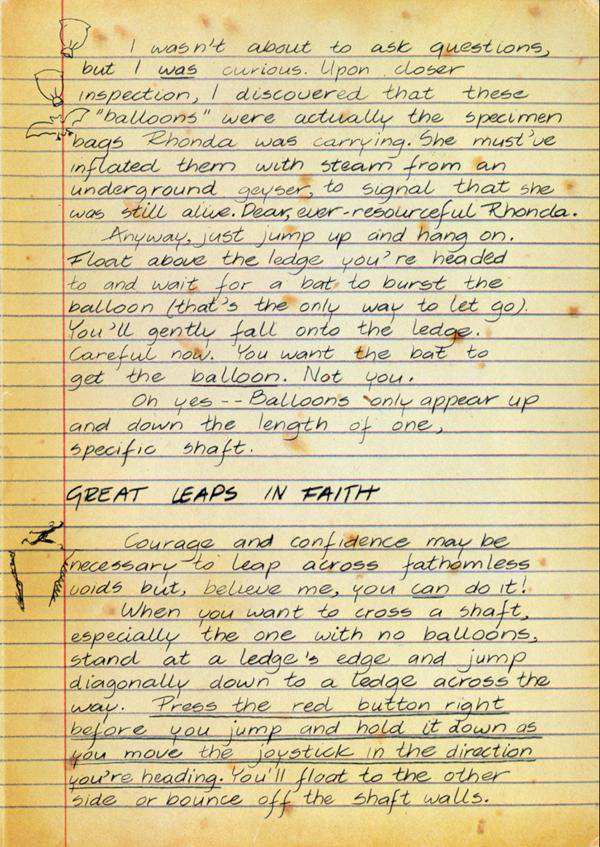 I wasn't about to ask questions,
but I was curious. Upon closer
inspection, I discovered that these
"balloons" were actually the specimen
bags Rhonda was carrying. She must've
inflated them with steam from an
underground geyser, to signal that she
was still alive. Dear, ever-resourceful Rhonda.
Anyway, just jump up and hang on.
Float above the ledge you're headed
to and wait for a bat to burst the
balloon (that's the only way to let go).
You'll gently fall onto the ledge.
Careful now. You want the bat to
get the balloon. Not you.
Oh yes -- Balloons only appear up
and down the length of one,
specific shaft.
GREAT LEAPS IN FAITH
Courage and confidence may be
necessary to leap across fathomless
voids but, believe me, you can do it!
When you want to cross a shaft,
especially the one with no balloons,
stand at a ledge's edge and jump
diagonally down to a ledge across the
way. Press the red button right
before you jump and hold it down as
you move the joystick in the direction
you're heading. You'll float to the other
side or bounce off the shaft walls.